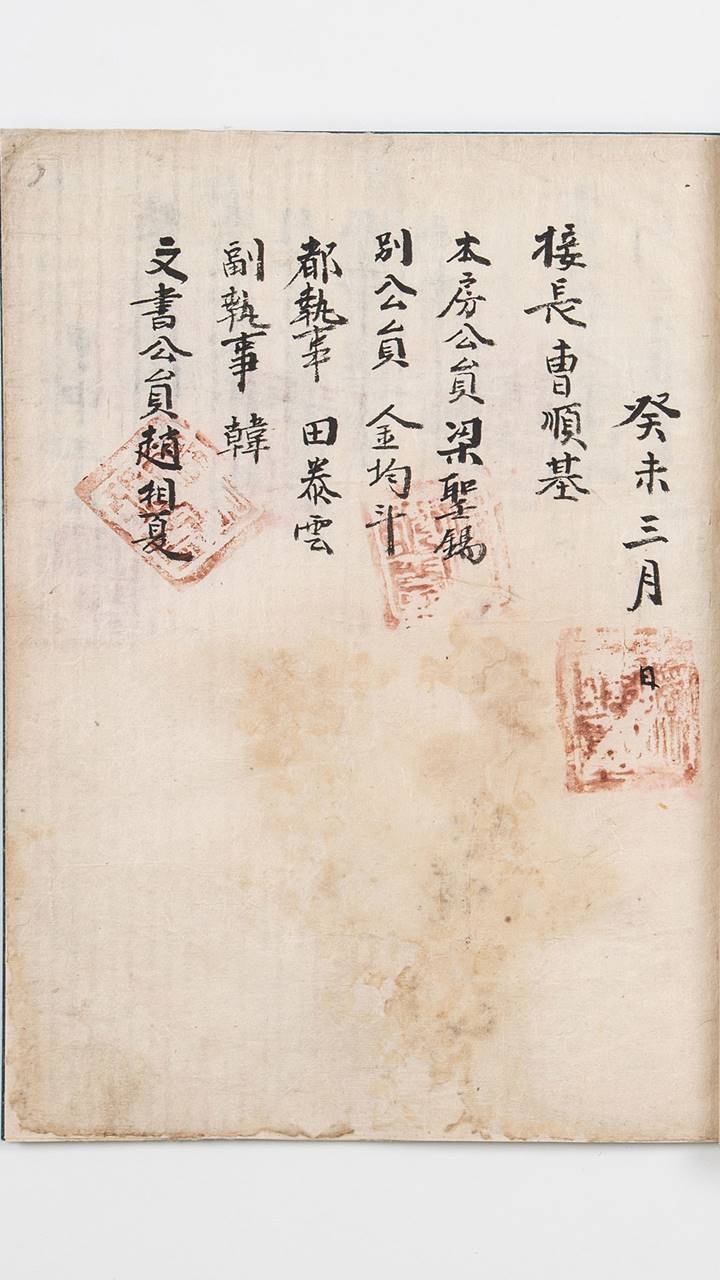 癸未三月 日
接長 曺順基
本房公員 梁聖錫
別公員 金均斗
都執事 田泰雲
副執事 韓
文書公員 趙祖夏